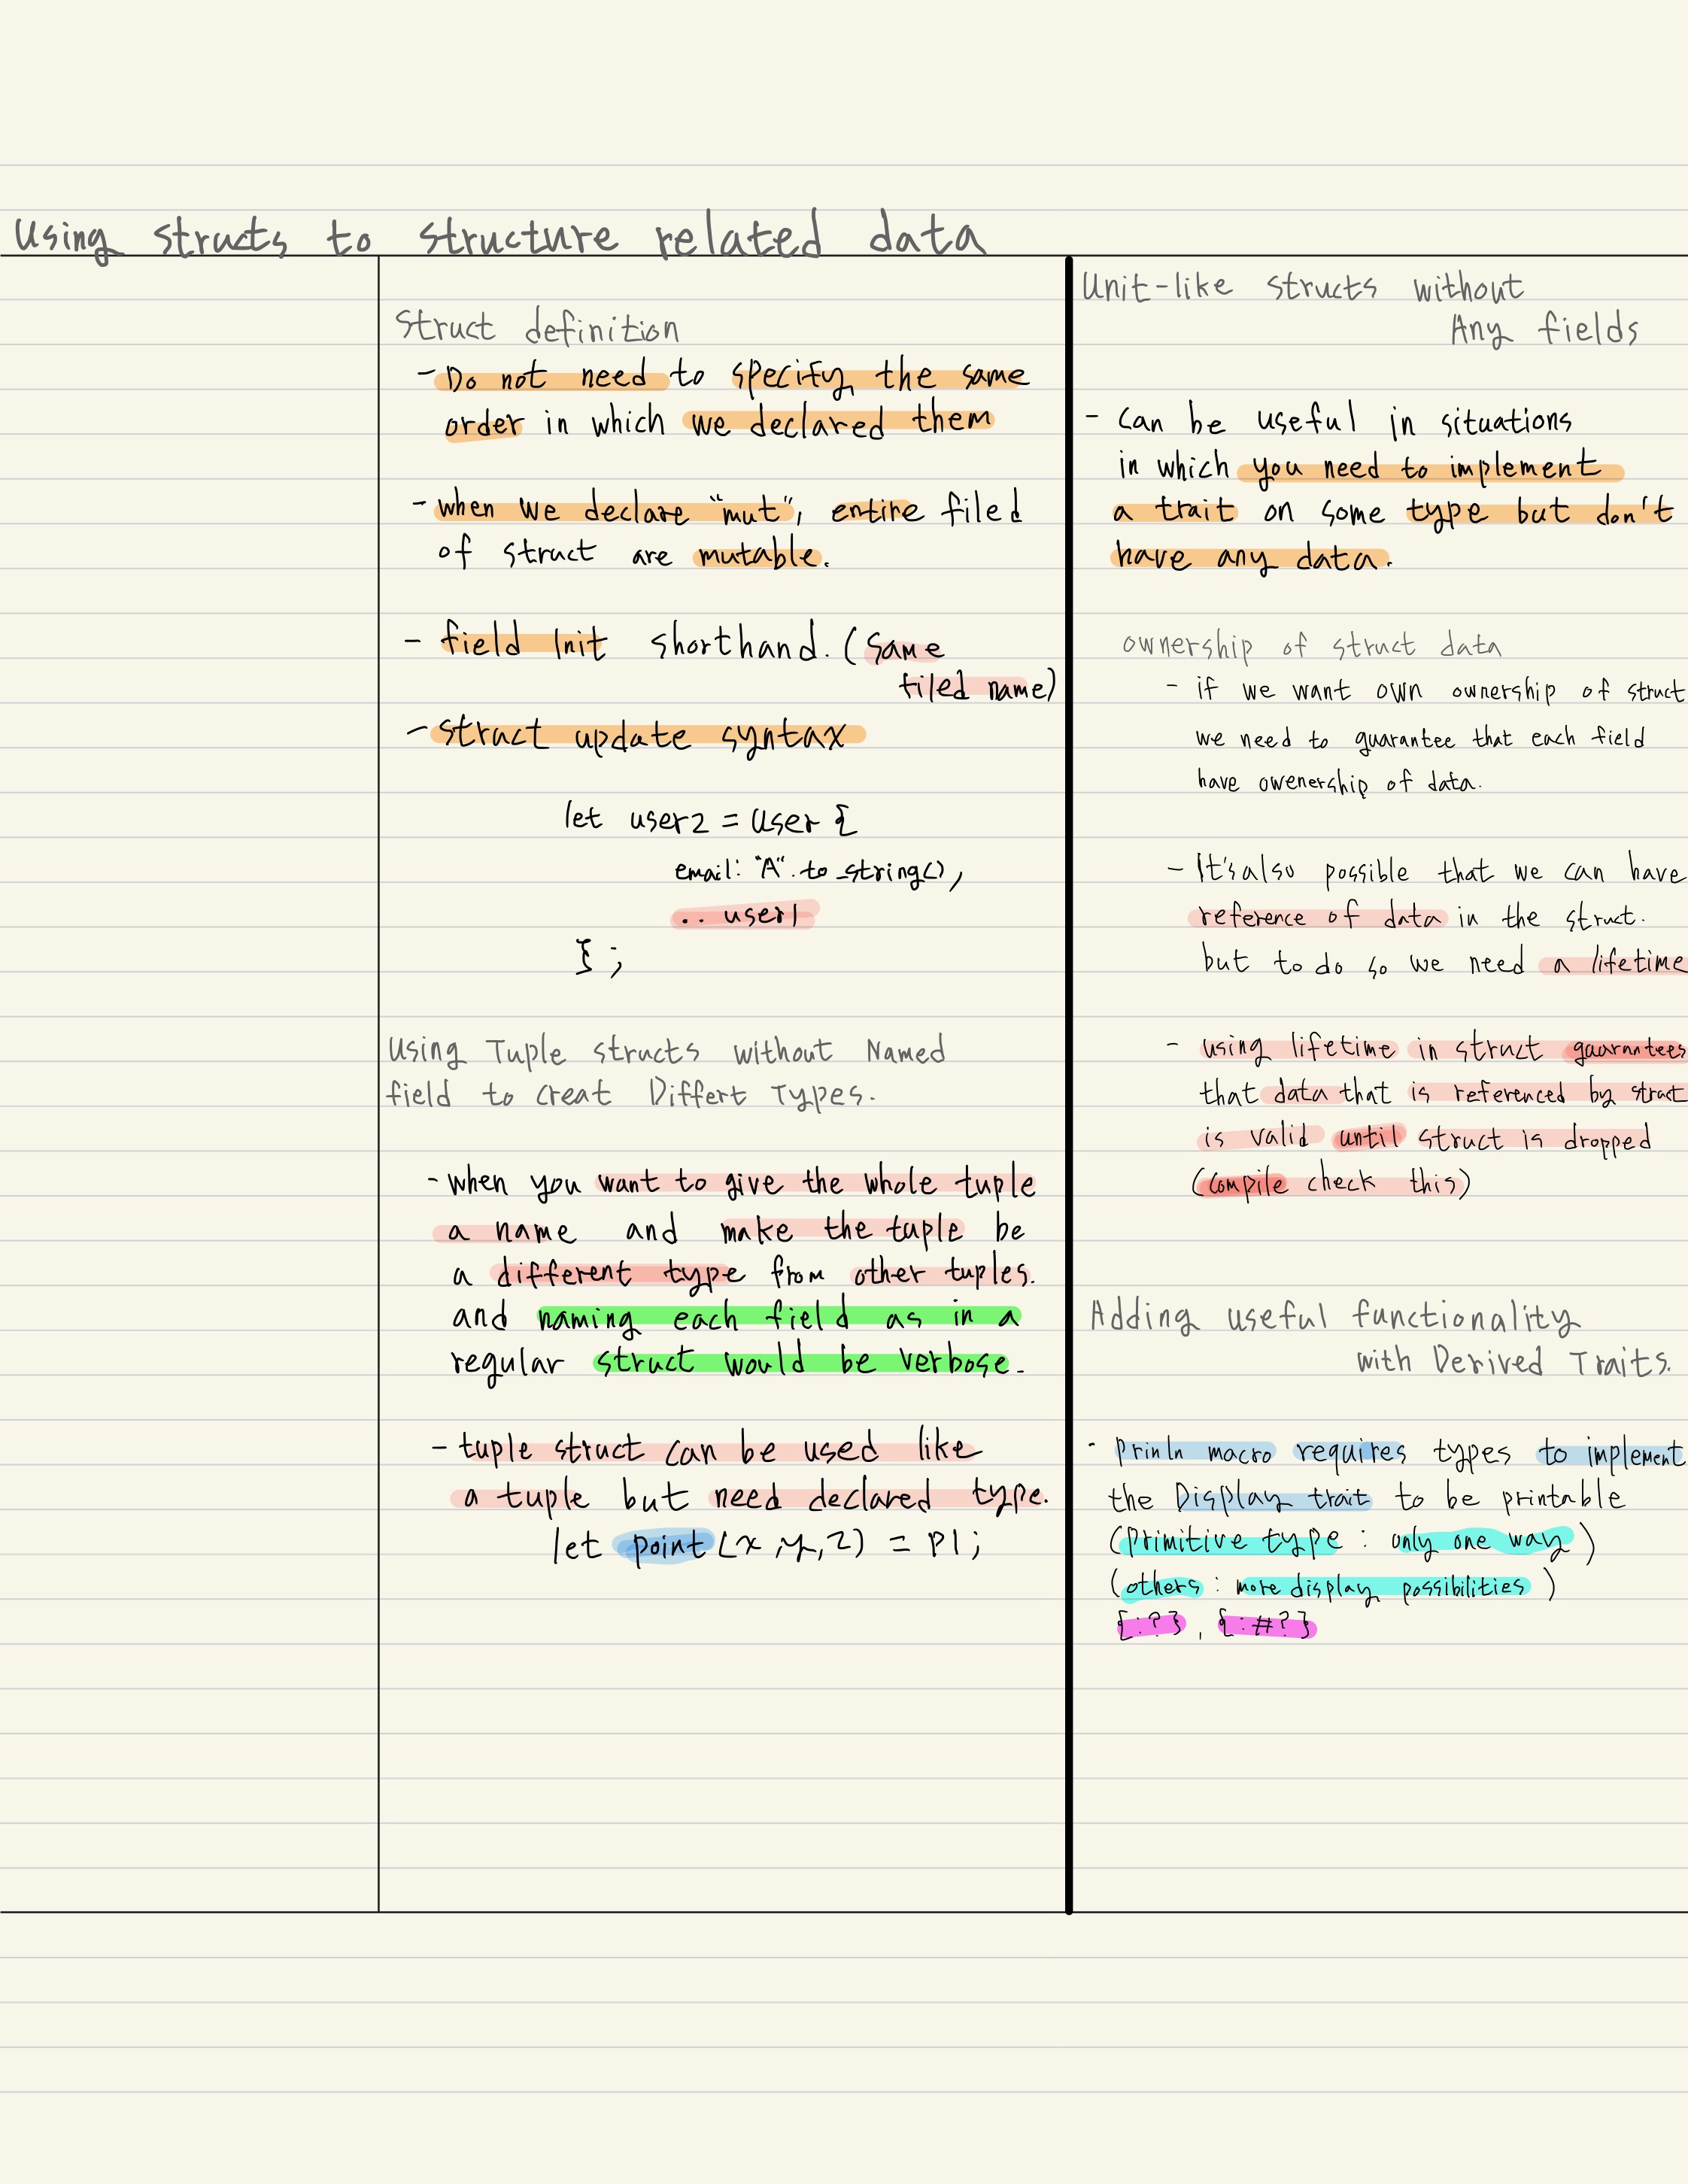 Using structs to structure related data
Struct definition
- Do not need to specify the same
order in which we declared them
- when we declare "mut", entire filed
of struct are mutable.
- field Init shorthand. (same
filed name)
- struct update syntax
let user2 = User {
email: "A".to_string(),
.. user1
};
Using Tuple structs without Named
field to creat Differt Types.
- when you want to give the whole tuple
a name and make the tuple be
a different type from other tuples.
and naming each field as in a
regular struct would be verbose.
- tuple struct can be used like
a tuple but need declared type.
let point(x,y,z) = p1;
Unit-like structs without
Any fields
- can be useful in situations
in which you need to implement
a trait on some type but don't
have any data.
ownership of struct data
- if we want own ownership of struct
we need to guarantee that each field
have owenership of data.
- It's also possible that we can have
reference of data in the struct.
but to do so we need a lifetime
- using lifetime in struct gaarnntees
that data that is referenced by struct
is valid until struct is dropped
(compile check this)
Adding useful functionality
with Derived Traits.
- prinln macro requires types to implement
the Display trait to be printable
(primitive type : only one way)
(others : more display possibilities)
{:?}, {:#?}